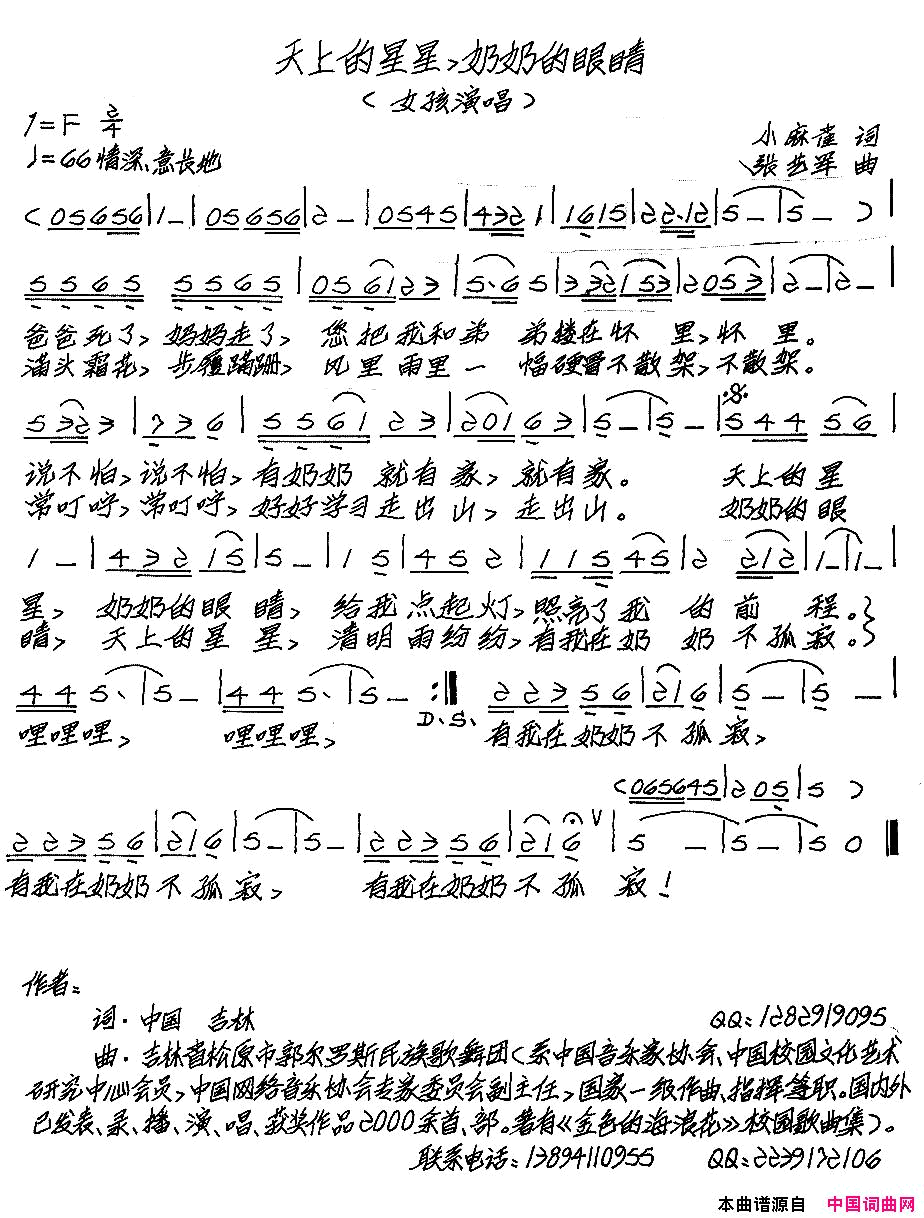 天上的星星，奶奶的眼睛
（女孩演唱）
1=F 2/4
♩=66 情深、意长地
小麻雀 词
张艺军 曲
（05656|1-|05656|2-|0545|4321|1615|22·12|5-|5-）|
5565 5565|056123|5·65|332153|2053|2-|2-|
爸爸死了，妈妈走了，您把我和弟 弟搂在怀 里，怀 里。
满头霜花，步履蹒跚，风里雨里一 幅硬骨不散架，不散架。
5323|736|556123|20163|5-|5-|544 56|
说不怕，说不怕，有奶奶 就有家，就有家。 天上的星
常叮咛，常叮咛，好好学习走出山，走出山。 奶奶的眼
1-|43215|5-|15|452|11545|2 212|1-|1-|
星， 奶奶的眼 睛， 给我点起灯，照亮了我 的前 程。
睛， 天上的星 星， 清明雨纷纷，有我在奶 奶不孤寂。
445、|5-|445、|5-:‖ 22356|216|5-|5-|
D.S.
哩哩哩， 哩哩哩， 有我在奶奶不孤寂，
（065645|205|5）
22356|216|5-|5-|22356|216|5-|5-|50‖
有我在奶奶不孤寂， 有我在奶奶不孤 寂！
作者：
词·中国 吉林 QQ：1282919095
曲·吉林省松原市郭尔罗斯民族歌舞团（系中国音乐家协会、中国校园文化艺术
研究中心会员，中国网络音乐协会专家委员会副主任，国家一级作曲、指挥等职。国内外
已发表、录、播、演、唱、获奖作品2000余首、部。著有《金色的海浪花》校园歌曲集）。
联系电话：13894110955 QQ：2239172106
本曲谱源自 中国词曲网